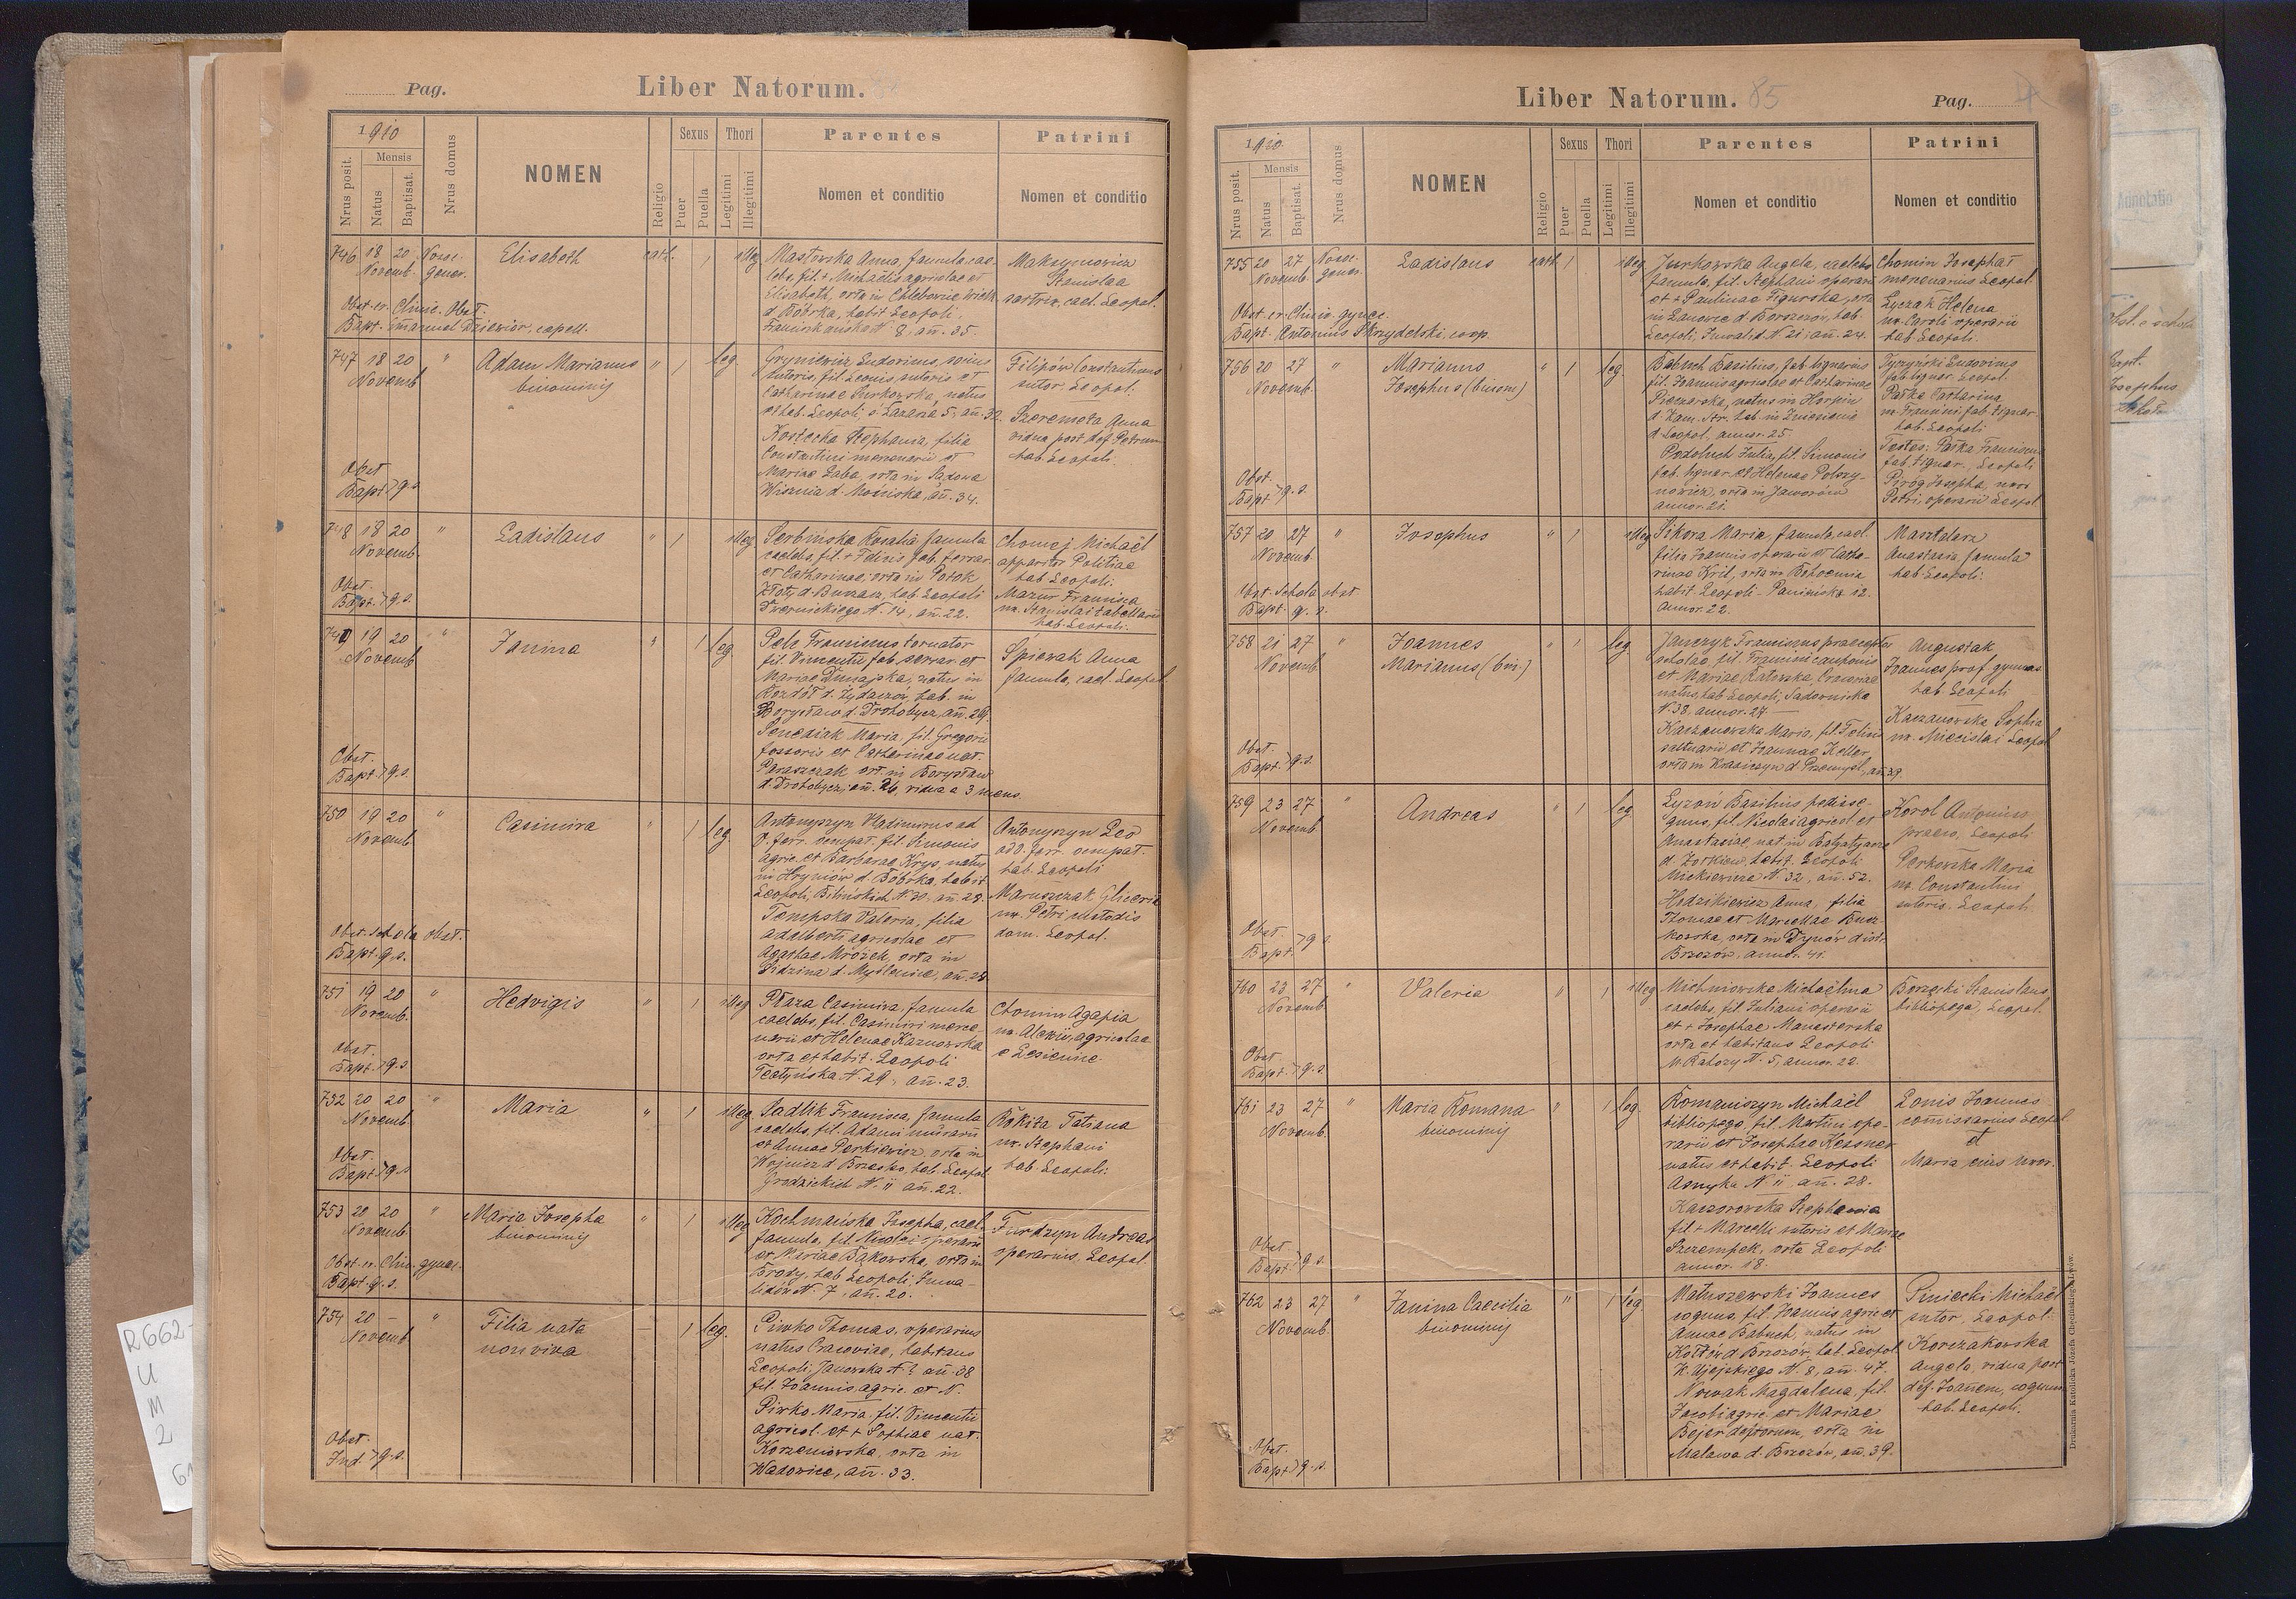 Pag.
Liber Natorum.
1910
Nrus posit.
Mensis
Natus
Baptisat.
Nrus domus
NOMEN
Religio
Sexus
Puer
Puella
Thori
Legitimi
Illegitimi
Parentes
Nomen et conditio
Patrini
Nomen et conditio
746 18 20 Nosoc.
Novemb. gener.
Elisabeth
cath. 1 illeg
Masłowska Anna, famula cae-
lebs, fil. + Michaëlis agricolae et
Elisabeth, orta in Chlebowice wielk.
d. Bóbrka, habit Leopoli,
Franciskanska N. 8, añ. 35.
Maksymowicz
Stanislaa
sartrix, cael. Leopol.
Obst. ex Clinic. Obst.
Bapt. Emanuel Dziewior, capell.
747 18 20 "
Novemb
Adam Marianus
binominis
" 1 leg.
Gryniewicz Ludovicus, socius
sutoris, fil. Leonis, sutoris et
Catharinae Surkowska, natus
et hab. Leopoli, s. Lazara 5, añ. 32.
Kostecka Stephania, filia
Constantini mercenarii et
Mariae Łaba, orta in Sądowa
Wisznia d. Mościska, añ. 34.
Filipów Constantinus
sutor. Leopol.
Szeremeta Anna
vidua post def. Petrum
hab. Leopoli.
Obst.
Bapt. q. s.
748 18 20 "
Novemb.
Ladislaus
" 1 illeg
Serbińska Rosalia famula
caelebs, fil. + Felicis fab. ferrar.
et Catharinae, orta in Potok
Złoty d. Buczacz, hab. Leopoli
Dwernickiego N. 14, añ. 22.
Chomej Michaël
apparitor Politiae
hab. Leopoli.
Mazur Francisca
ux. Stanislai tabellarii
hab. Leopoli.
Obst.
Bapt. q. s.
749 19 20 "
Novemb
Janina
" 1 leg.
Pelc Franciscus tornator
fil. Vincentii fab. serrar. et
Mariae Dunajska, natus in
Rozdół d. Żydaczów, hab. in
Borysław d. Drohobycz, añ. 29.
Senediak Maria, fil. Gregorii
fossoris et Catharinae nat.
Paraszczak ort. in Borysław
d. Drohobycz, añ. 26, vidua a 3 mens.
Śpiewak Anna
famula, cael. Leopol.
Obst.
Bapt. q. s.
750 19 20 "
Novemb
Casimira
" 1 leg.
Antonyszyn Vladimirus ad
v. ferr. occupat. fil. Simonis
agric. et Barbarae Krys, natus
in Hryniów d. Bóbrka, habit
Leopoli, Bilińskich N. 30, añ. 28.
Tempska Valeria, filia
Adalberti agricolae et
Agathae Mrózek, orta in
Sidzina d. Myślenice, añ. 28
Antonyszyn Leo
ad v. ferr. occupat.
hab. Leopoli
Maruszczak Gliceria
ux. Petri custodis
dom. Leopol.
Obst. Schola obst.
Bapt. q. s.
751 19 20 "
Novemb.
Hedvigis
" 1 illeg
Płaza Casimira, famula
caelebs, fil. Casimiri merce-
narii et Helenae Kaznowska
orta et habit. Leopoli
Teatyńska N. 29, añ. 23.
Chomin Agapia
ux. Alexii, agricolae
e Lesienice
Obst.
Bapt. q. s.
752 20 20 "
Novemb.
Maria
" 1 illeg
Sadlik Francisca, famula
caelebs, fil. Adami murarii
et Annae Perkiewicz, orta in
Wojnicz d. Brzesko, hab. Leopol.
Grodzickich N. 11 añ. 22.
Rokita Tatiana
ux. Stephani
hab. Leopoli.
Obst.
Bapt. q. s
753 20 20 "
Novemb.
Maria Josepha
binominis
" 1 illeg
Kochmańska Josepha, cael.
famula, fil. Nicolai operarii
et Mariae Bąkowska, orta in
Brody, hab. Leopoli, Inwa-
lidów N. 7, añ. 20.
Furdzyn Andreas
operarius, Leopol.
Obst. ex Clin. gynec.
Bapt. q. s.
754 20 — "
Novemb
Filia nata
non viva
— 1 leg.
Piwko Thomas, operarius
natus Cracoviae, habitans
Leopoli, Janowska N. ? añ. 38
fil. Joannis, agric. et N.
Piwko Maria, fil. Vincentii
agricol. et + Sophiae nat.
Korzeniowska, orta in
Wadowice, añ. 33.
Obst.
Ind. q. s.
Liber Natorum. 85
Pag.
1910.
Nrus posit.
Mensis
Natus
Baptisat.
Nrus domus
NOMEN
Religio
Sexus
Puer
Puella
Thori
Legitimi
Illegitimi
Parentes
Nomen et conditio
Patrini
Nomen et conditio
755 20 27 Nosoc.
Novemb. gener.
Ladislaus
cath 1 illeg
Jurkowska Angela, caelebs
famula, fil. Stephani operarii
et + Paulinae Figurska, orta
in Łanowce d. Borszczów, hab.
Leopoli, Inwalid. N. 21, añ. 24.
Chomin Josephat
mercenarius Leopol.
Łyczak Helena
ux. Caroli operarii
hab. Leopoli.
Obst. ex Clinic. gynec.
Bapt. Antonius Skrzydelski, coop.
756 20 27 "
Novemb.
Marianus
Josephus (binom)
" 1 leg.
Babuch Basilius, fab. lignarius
fil. Joannis agricolae et Catharinae
Pieczarska, natus in Horpin
d. Kam. Str. hab. in Zniesienie
d. Leopol, annor. 25.
Podoluch Julia, fil. Simonis
fab. lignar. et Helenae Potocy-
nowicz, orta in Jaworów
annor. 21.
Tyrzyński Ludovicus
fab. lignar. Leopol.
Paśka Catharina
ux. Francisci fab. lignar.
hab. Leopoli
Testes: Paśka Franciscus
fab. lignar., Leopoli
Piróg Josepha, uxor
Petri, operarii Leopol.
Obst.
Bapt. q. s.
757 20 27 "
Novemb.
Josephus
" 1 illeg
Sikora Maria, famula, cael.
filia Joannis operarii et Catha-
rinae Kril, orta in Bohoemia
habit. Leopoli - Panieńska 12.
annor. 22.
Masztalerz
Anastasia famula
hab. Leopoli.
Obst. Schola obst.
Bapt. q. s.
758 21 27 "
Novemb
Joannes
Marianus (bin.)
" 1 leg.
Janczyk Franciscus praeceptor
scholae, fil. Francisci cauponis
et Mariae Ratowska, Cracoviae
natus, hab. Leopoli, Sadownicka
N. 38, annor. 27
Kaszanowska Maria, fil. Felicis
saltuarii et Joannae Keller,
orta in Krasiczyn d. Przemyśl, añ. 29.
Augustak
Joannes prof. gymnas
hab. Leopoli
Kaszanowska Sophia
ux. Miecislai Leopol.
Obst.
Bapt. q. s.
759 23 27 "
Novemb.
Andreas
" 1 leg.
Łyzoń Basilius pedisse-
quus, fil. Nicolai agricol. et
Anastasiae, nat. in Batyatycze
d. Żołkiew, habit. Leopoli
Mickiewicza N. 32, añ. 52.
Hedzikiewicz Anna, filia
Thomae et Marcellae Bucz-
kowska, orta in Dynów distr.
Brzozów, annor. 41.
Korol Antonius
praeco, Leopoli
Perkowska Maria
ux. Constantini
sutoris. Leopoli.
Obst.
Bapt. q. s.
760 23 27 "
Novemb.
Valeria
" 1 illeg
Michniowska Michaëlina
caelebs, fil. Juliani operarii
et + Josephae Manasterska
orta et habitans Leopoli
u. Ratozy N. 5, annor. 22.
Borzęcki Stanislaus
bibliopega, Leopol.
Obst.
Bapt. q. s.
761 23 27 "
Novemb.
Maria Romana
binominis
" 1 leg.
Romaniszyn Michaël
bibliopega, fil. Martini ope-
rarii et Josephae Kessner
natus et habit. Leopoli
Asnyka N. 11 añ. 28.
Kaczorowska Stephania
fil. + Marcelli sutoris et Mariae
Szczempek, orta Leopoli
annor. 18.
Lonis Joannes
comissarius Leopol
et
Maria eius uxor.
Obst.
Bapt. q. s.
762 23 27 "
Novemb.
Janina Caecilia
binominis
" 1 leg.
Matuszewski Joannes
coquus, fil. Joannis, agric. et
Annae Babuch, natus in
Końtów d. Brzozów, hab. Leopol.
K. Ujejskiego N. 8, añ. 47.
Nowak Magdalena, fil.
Jacobi agric. et Mariae
Bojer defctorum, orta in
Malawa d. Brzozów, añ. 39.
Piniecki Michaël
sutor, Leopol.
Korczakowska
Angela, vidua post
def. Joañem, coquum
hab. Leopoli.
Obst.
Bapt. q. s.
Drukarnia Katolicka Józefa Chęcińskiego Lwów.
Annotatio
Obst. e schola
Bapt.
Josephus
R662-
U
M
2